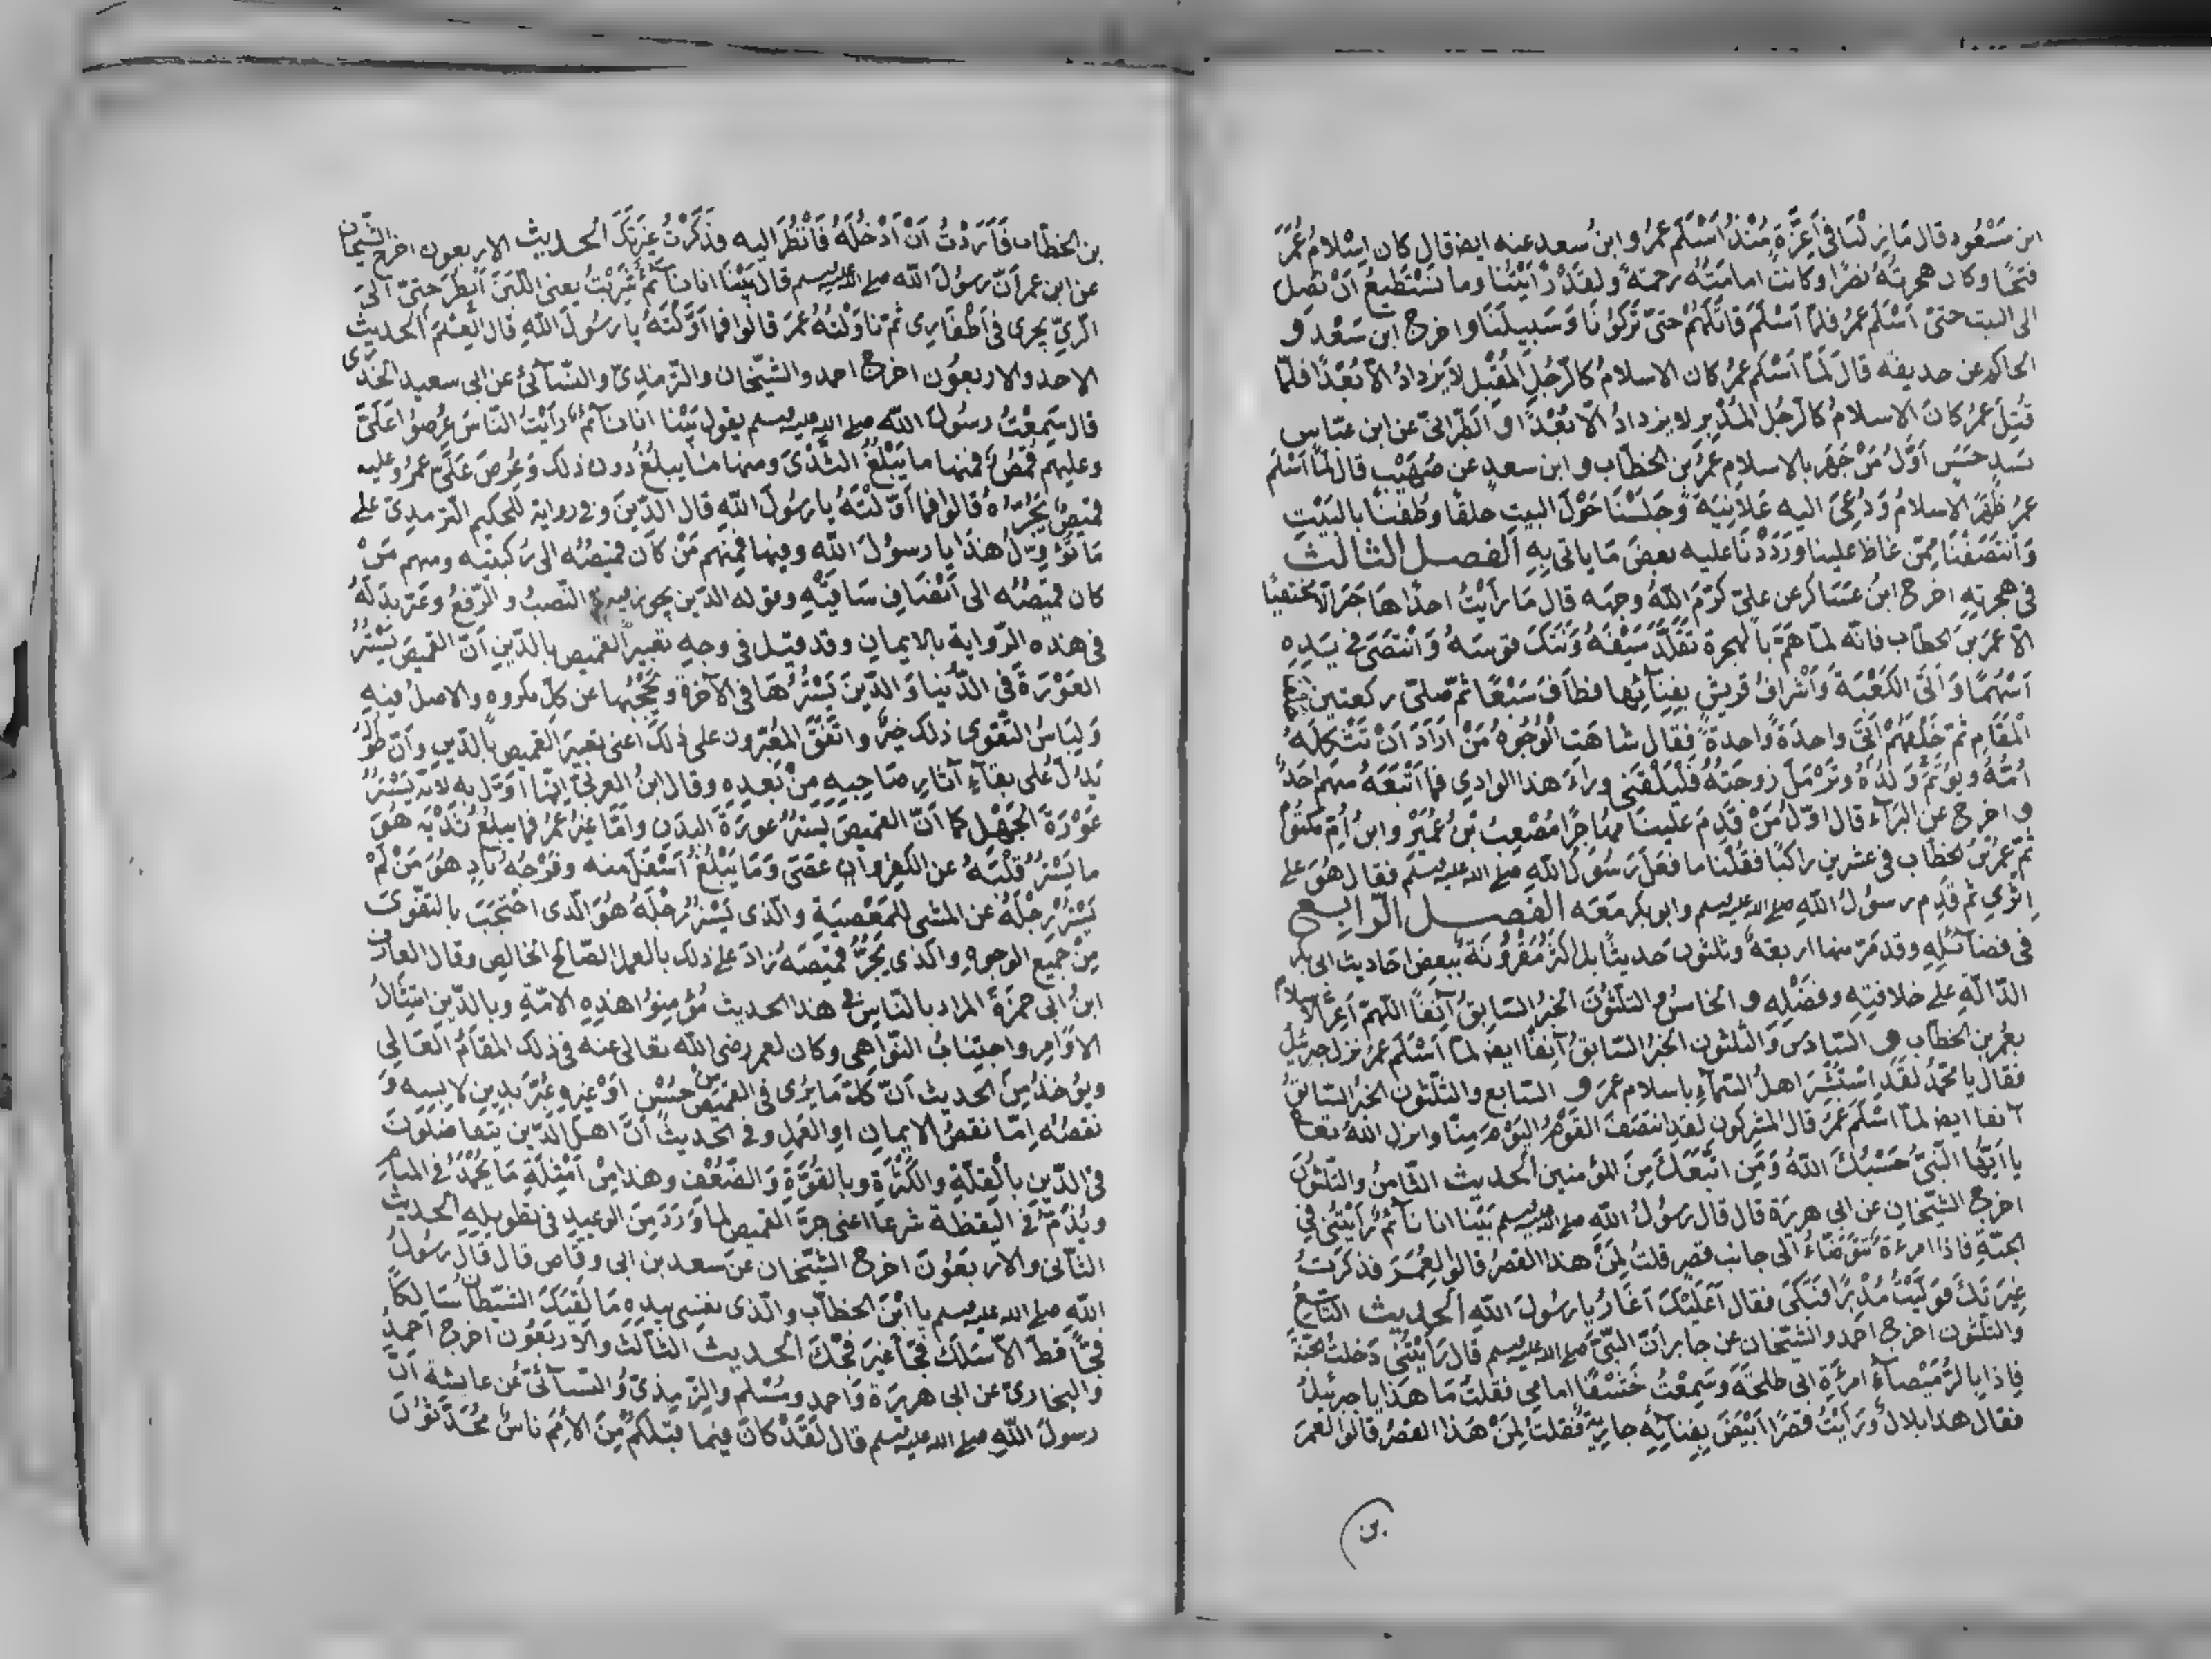 ابن مَسْعُودٍ قال مَا زِلْنَا في اَعِزَّةٍ مُنْذُ اَسْلَمَ عُمَرُ وابنُ سعدٍ عنه ايضا قال كان اِسْلامُ عُمَرَ
فتحًا وكان هجرتُهُ نصرًا وكانت امامَتُهُ رحمةً ولقد رَأَيْتُنَا وما نَسْتَطيعُ اَنْ نُصَلِّ
الى البيت حتىّ اَسْلَمَ عُمَرُ فلمّا اَسْلَمَ قاتَلَهُمْ حتىّ تَرَكُوْنَا وَسَبِيلَنَا واخرج ابن سَعْد و
الحاكم عن حذيفة قال لَمّا اَسْلَمَ عمرُ كان الاسلامُ كالرّجُلِ المُقْبِل لا يزدادُ الّا بُعْدًا فلمّا
قُتِلَ عمرُ كانَ الاسلامُ كالرّجُل المُدْبِر لا يزدادُ الّا بُعْدًا و الطّبرانيّ عن ابن عبّاس
بسندٍ حَسَنٍ اَوَّلُ مَنْ جَهَرَ بالاسلامِ عُمَرُ بن الخطّاب و ابن سعدٍ عن صُهَيْبٍ قال لمّا اَسْلَمَ
عمرُ ظَهَرَ الاسلامُ وَدُعِيَ اليه عَلانِيَةً وَجَلَسْنَا حَوْلَ البيتِ حلقًا وطُفْنَا بالبَيْتِ
وَانْتَصَفْنَا مِمّن غلظ علينا ورَدَدْنَا عليه بعضَ مَا ياتي بِهِ الفصل الثالث
في هجرتِهِ اخرج ابنُ عَسَاكر عن عليّ كَرَّمَ اللّهُ وجهَه قال مَا رأيتُ احدًا هَاجَرَ الّا مختفيًا
الّا عمرَ بنَ الخطّاب فانّه لمّا هَمَّ بالهجرة تَقَلَّدَ سَيْفَهُ وَتَنَكَّبَ قوسَهُ وَانْتَضَى في يَدِهِ
اَسْهُمًا وَاَتَى الكَعْبَةَ وَاَشْرَافُ قُرَيشٍ بِفِنَآئِها فطافَ سَبْعًا ثمّ صلّى ركعتين عند
المَقَامِ ثمّ حَلَقَهُمْ اَتَى واحدَةً واحدةً فقال شاهَت الْوُجُوهُ مَنْ اَرَادَ اَنْ تَثْكَلَهُ
اُمُّهُ ويُوْتَمَ وَلَدُهُ وتَرْمَلَ زوجتُهُ فَلْيَلْقَني وراءَ هذا الوادي فما اَتْبَعَهُ منهم احدٌ
و اخرج عن البَرَآءِ قال اوّلُ مَنْ قَدِمَ علينا مهاجرًا مُصْعَبُ بْنُ عُمَيْرٍ وابنُ اُمّ مَكْتُوْمٍ
ثمّ عُمَرُ بنُ الخطّاب في عشرين راكبًا فقُلْنا ما فعَلَ رَسُوْلُ اللّهِ صلى الله عليه وسلم فقال هُوَ على
اِثْرِي ثمّ قَدِمَ رسوُلُ اللّه صلى الله عليه وسلم وابو بكر مَعَه الفصل الرابع
في فضَآئِلِهِ وقد مَرّ منها اربعةٌ وثلثون حَديثًا بل اكثرُ مَقْرُوْنَةً ببعض احَاديث ابي بكر
الدّالّةِ على خلافتِهِ وفضلِهِ و الخامسُ والثلثُونَ الخبرُ السّابِقُ آنِفًا اللّهمّ اَعِزّ الاسلام
بعُمر بن الخطّاب و السّادسُ وَالثّلثون الخبرُ السّابقُ آنِفًا ايضا لمّا اَسْلَمَ عمرُ نزل جبرئيلُ
فقال يا محمّدُ لَقَدِ اسْتَبْشَرَ اهلُ السّمآءِ باسلامِ عمرَ و السّابع والثّلثون الخبرُ السّابقُ
آنفا ايضا لمّا اَسْلَمَ عمرُ قال المشركون لَقَدِ انتَصَفَ القَوْمُ اليَوْمَ مِنّا وانزل اللّهُ تعالى
يا اَيّهَا النّبيُّ حَسْبُكَ اللّهُ وَمَنِ اتّبَعَكَ مِنَ المُؤمنين الحديث الثّامنُ والثّلثُوْنَ
اخرج الشّيخانِ عن ابي هريرَة قال قال رسوُلُ اللّهِ صلى الله عليه وسلم بَيْنَا انا نآئمٌ رَأَيْتُني في
الجنّةِ فاذا امرءَةٌ تَتَوَضّأُ الى جانب قصرٍ قلتُ لِمَنْ هذا القصرُ قالوا لِعُمَرَ فذكَرْتُ
غيرتَكَ فَوَلّيْتُ مُدْبِرًا فَبَكَى فقال اَعَلَيْكَ اَغَارُ يا رسُوْلَ اللّهِ الحديث التاسع
والثّلثون اخرج احمد والشيّخان عن جابر اَنّ النّبيّ صلى الله عليه وسلم قال رَأَيْتُنى دَخلتُ الجنّة
فاذا بِالرُّمَيْصآءِ امرءَةِ ابي طلحَةَ وَسَمِعْتُ خَشْفًا امامي فقلتُ مَا هذا يا جبرئيلُ
فقال هذا بلالٌ ورَأَيْتُ قصرًا اَبْيَضَ بِفِنائِهِ جاريةٌ فقلتُ لِمَنْ هذا القصرُ قالوا لعمرَ
بن
بن الخطّاب فَاَرَدْتُ اَنْ اَدْخُلَهُ فَاَنْظُرَ اليه فذَكَرْتُ غيْرَتَكَ الحديث الاربعون اخرج الشيخان
عن ابن عمرَ اَنّ رسُولَ اللّه صلى الله عليه وسلم قال بَيْنَا انا نآئمٌ شَرِبْتُ يعني اللّبَنَ اَنْظُرُ حتىّ الى
الرّيّ يجرى في اَظْفَارِى ثمّ نَاوَلْتُهُ عمرَ قالوا فما اَوَّلْتَهُ يا رسُولَ اللّهِ قال الْعِلْمَ الحديث
الاحد والاربعُون اخرج احمد والشيّخان والتّرمذيّ والنّسآئيّ عن ابي سعيد الخدرى
قال سَمِعْتُ رسوُلَ اللّه صلى الله عليه وسلم يقول بَيْنا انا نآئمٌ رَأَيْتُ النّاسَ عُرِضُوْا عَلَيّ
وعليهم قُمُصٌ فمنها ما يَبْلُغُ الثّدْيَ ومنها مَا يبلُغُ دون ذلك وَعُرِضَ عَلَيّ عمرُ وعليه
قميصٌ يَجُرّهُ قالوا فما اَوّلْتَهُ يا رسُوْلَ اللّهِ قال الدّينَ وفي رواية للحكيم التّرمذيّ على
مَا تُؤَوّلُ هذا يا رسوُلَ اللّه وفيها فَمِنهم مَنْ كان قميصُه الى رُكبتِه ومنهم مَنْ
كان قميصُه الى اَنْصَافِ سَاقَيْهِ وقوله الدّين يجوز فيه النّصبُ والرّفعُ وعَبّر بَدلَهُ
في هذه الرّواية بالايمانِ وقد قيل في وجهِ تعبيرِ القميصِ بالدّينِ اَنّ القميصَ يَسْتُرُ
العَوْرَةَ في الدُّنيا وَالدّينَ يَسْتُرُهَا في الآخرة ويحجُبُها عن كلّ مكروه والاصلُ فيه
وَلِبَاسُ التّقوى ذلك خيرٌ واتّفَقَ المُعبّرون على ذلكَ اعنى تعبيرَ القميص بالدّينِ وأنّ طولَهُ
يَدُلّ على بقآءِ آثارِ صَاحِبِهِ مِنْ بَعدِهِ وقال ابنُ العربيّ اِنّما اَوّلَه به لانّه يَسْتُرُ
عَوْرَةَ الْجَهْلِ كما أنّ القميصَ يَستُرُ عورَةَ البَدَنِ وامّا غيرُ عمرَ فما يبلغُ ثَدْيَه هُوَ
ما يَسْتُرُ قلبَهُ عن الكفرِ وان عَصَى وَمَا يَبْلُغُ اَسْفلَ منه وفرْجُهُ بادٍ هُوَ مَنْ لَمْ
يَسْتُرْ رِجْلَهُ عن المشي للمَعْصِيَةِ والّذى يَسْتُرُ رِجْلَهُ هُوَ الّذى احْتَجَبَ بالتّقوى
مِنْ جميع الوجوهِ والّذى يَجُرُّ قميْصَهُ زادَ على ذلك بالعمل الصّالح الخالص وقال العارف
ابنُ ابي جمرَةَ المراد بالنّاسِ في هذا الحديث مُؤمنوُا هذه الامّةِ وبالدّينِ امْتِثَالُ
الاوَامِر واجتِنابُ النّوَاهِي وكان لعمر رضي اللّه تعالى عنه في ذلك المقَامُ العَالِي
ويؤخذُ مِنَ الحديث اَنّ كلّ مَا يُرى في القميص من حُسْنٍ اوْ غيرِه عُبّرَ بدِينِ لابِسِهِ وَ
نقصُه اِمّا نقصُ الايمانِ اوِ العَمَلِ وفي الحَديثِ اَنّ اهلَ الدّينِ يتفاضلُوْنَ
في الدّينِ بالْقِلّةِ والكَثْرَةِ وبالْقُوّةِ وَالضّعْفِ وهذا مِنْ اَمْثِلَةِ مَا يُحْمَدُ في المنام
ويُذَمُّ في اليَقظَة شرعًا اعنى جرّ القميص لما وَرَدَ مِنَ الوَعيدِ في تطويلِهِ الحديث
الثّاني والاربَعُوْنَ اخرج الشّيخان عنَ سعد بن ابي وقّاص قال قال رسُولُ
اللّه صلى الله عليه وسلم يا ابْنَ الخطّاب والّذى نفسي بيدِهِ مَا لَقِيَكَ الشّيْطانُ سَالِكًا
فَجًّا قطّ الّا سَلَكَ فَجًّا غيرَ فَجّكَ الحديث الثّالثُ والاربَعُون اخرج احمدُ
والبخاريّ عن ابي هريرَة وَاحمد ومُسْلم والتّرمذيّ وُ النّسآئيّ عن عايشة انّ
رسولَ اللّهِ صلى الله عليه وسلم قال لَقَدْ كانَ فيما قَبْلَكُمْ مِنَ الأُمَمِ ناسٌ مُحَدَّثوْنَ